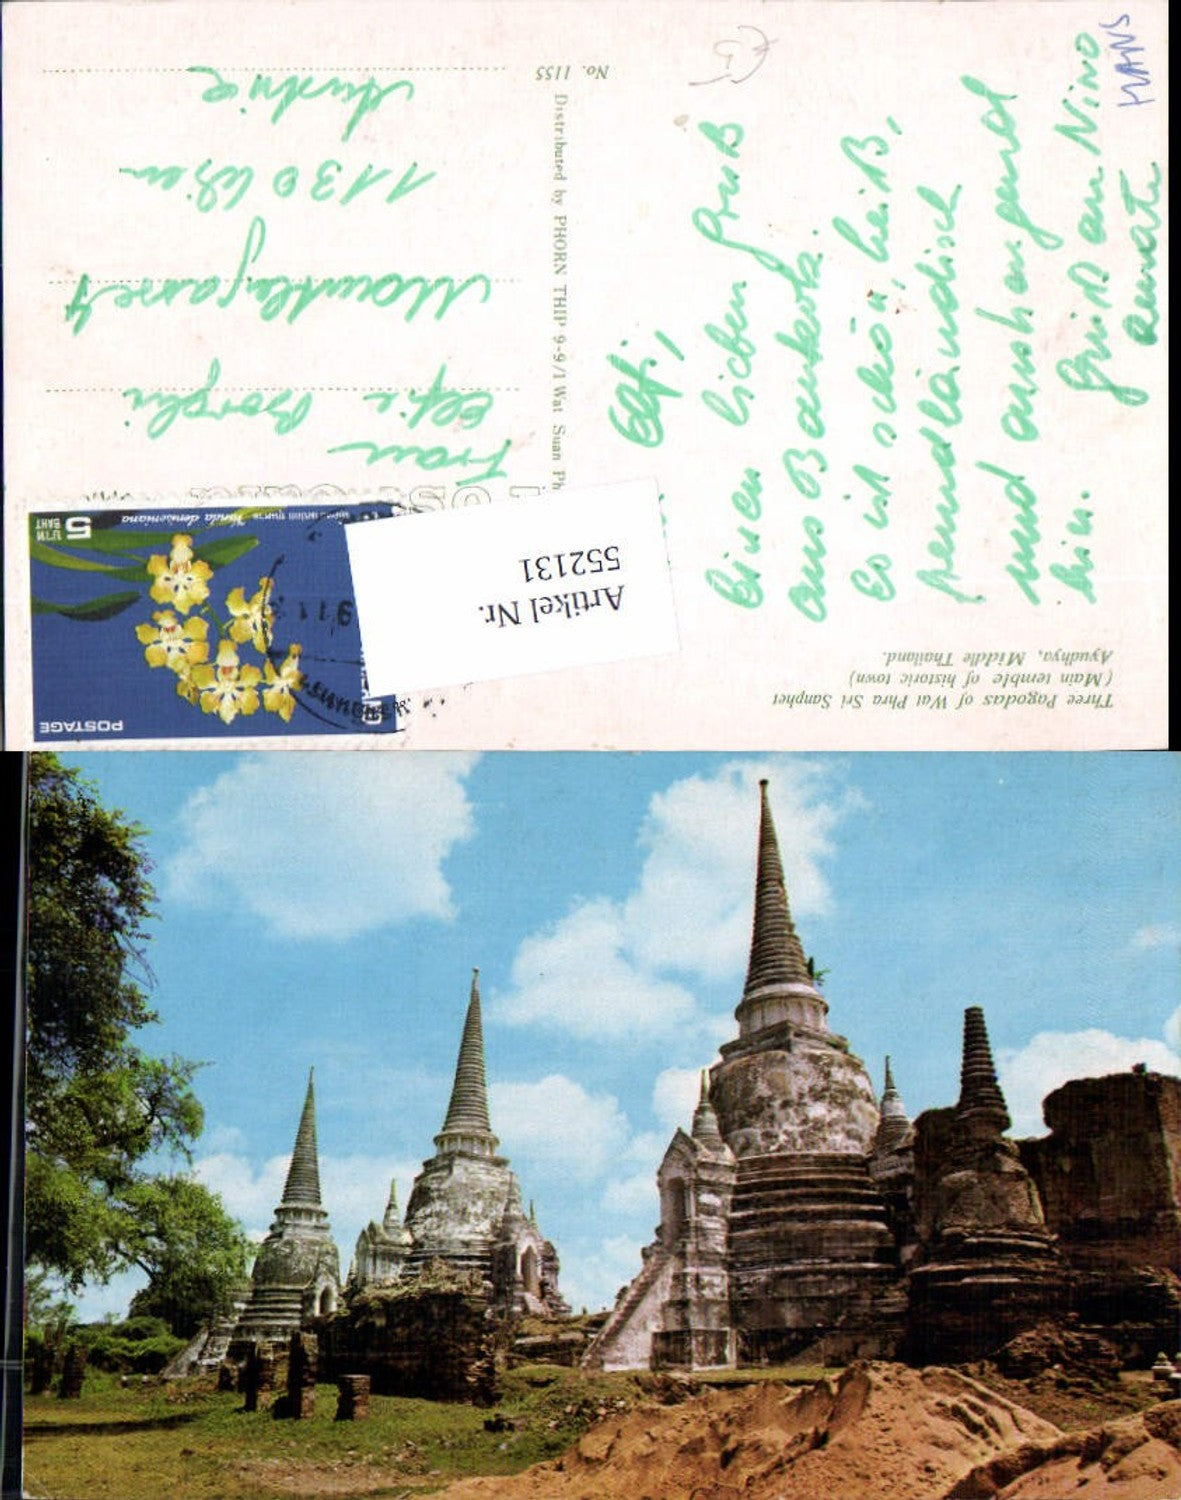 Three Pagodas of Wat Phra Sri Sanphet
(Main temble of historic town)
Ayudhya, Middle Thailand.
Elfi,
Einen lieben Gruß
aus Bankok.
Es ist schön, heiß,
fremdländisch
und anstrengend
hin.
Gruß an Nino
Renate
HANS
No. 1155
Distributed by PHORN THIP 9-9/1 Wat Suan Ph
Frau
Elfie Borghi
1130 Wien
Austria
POSTAGE
5
บาท
BAHT
Vanda denisoniana
Artikel Nr.
552131